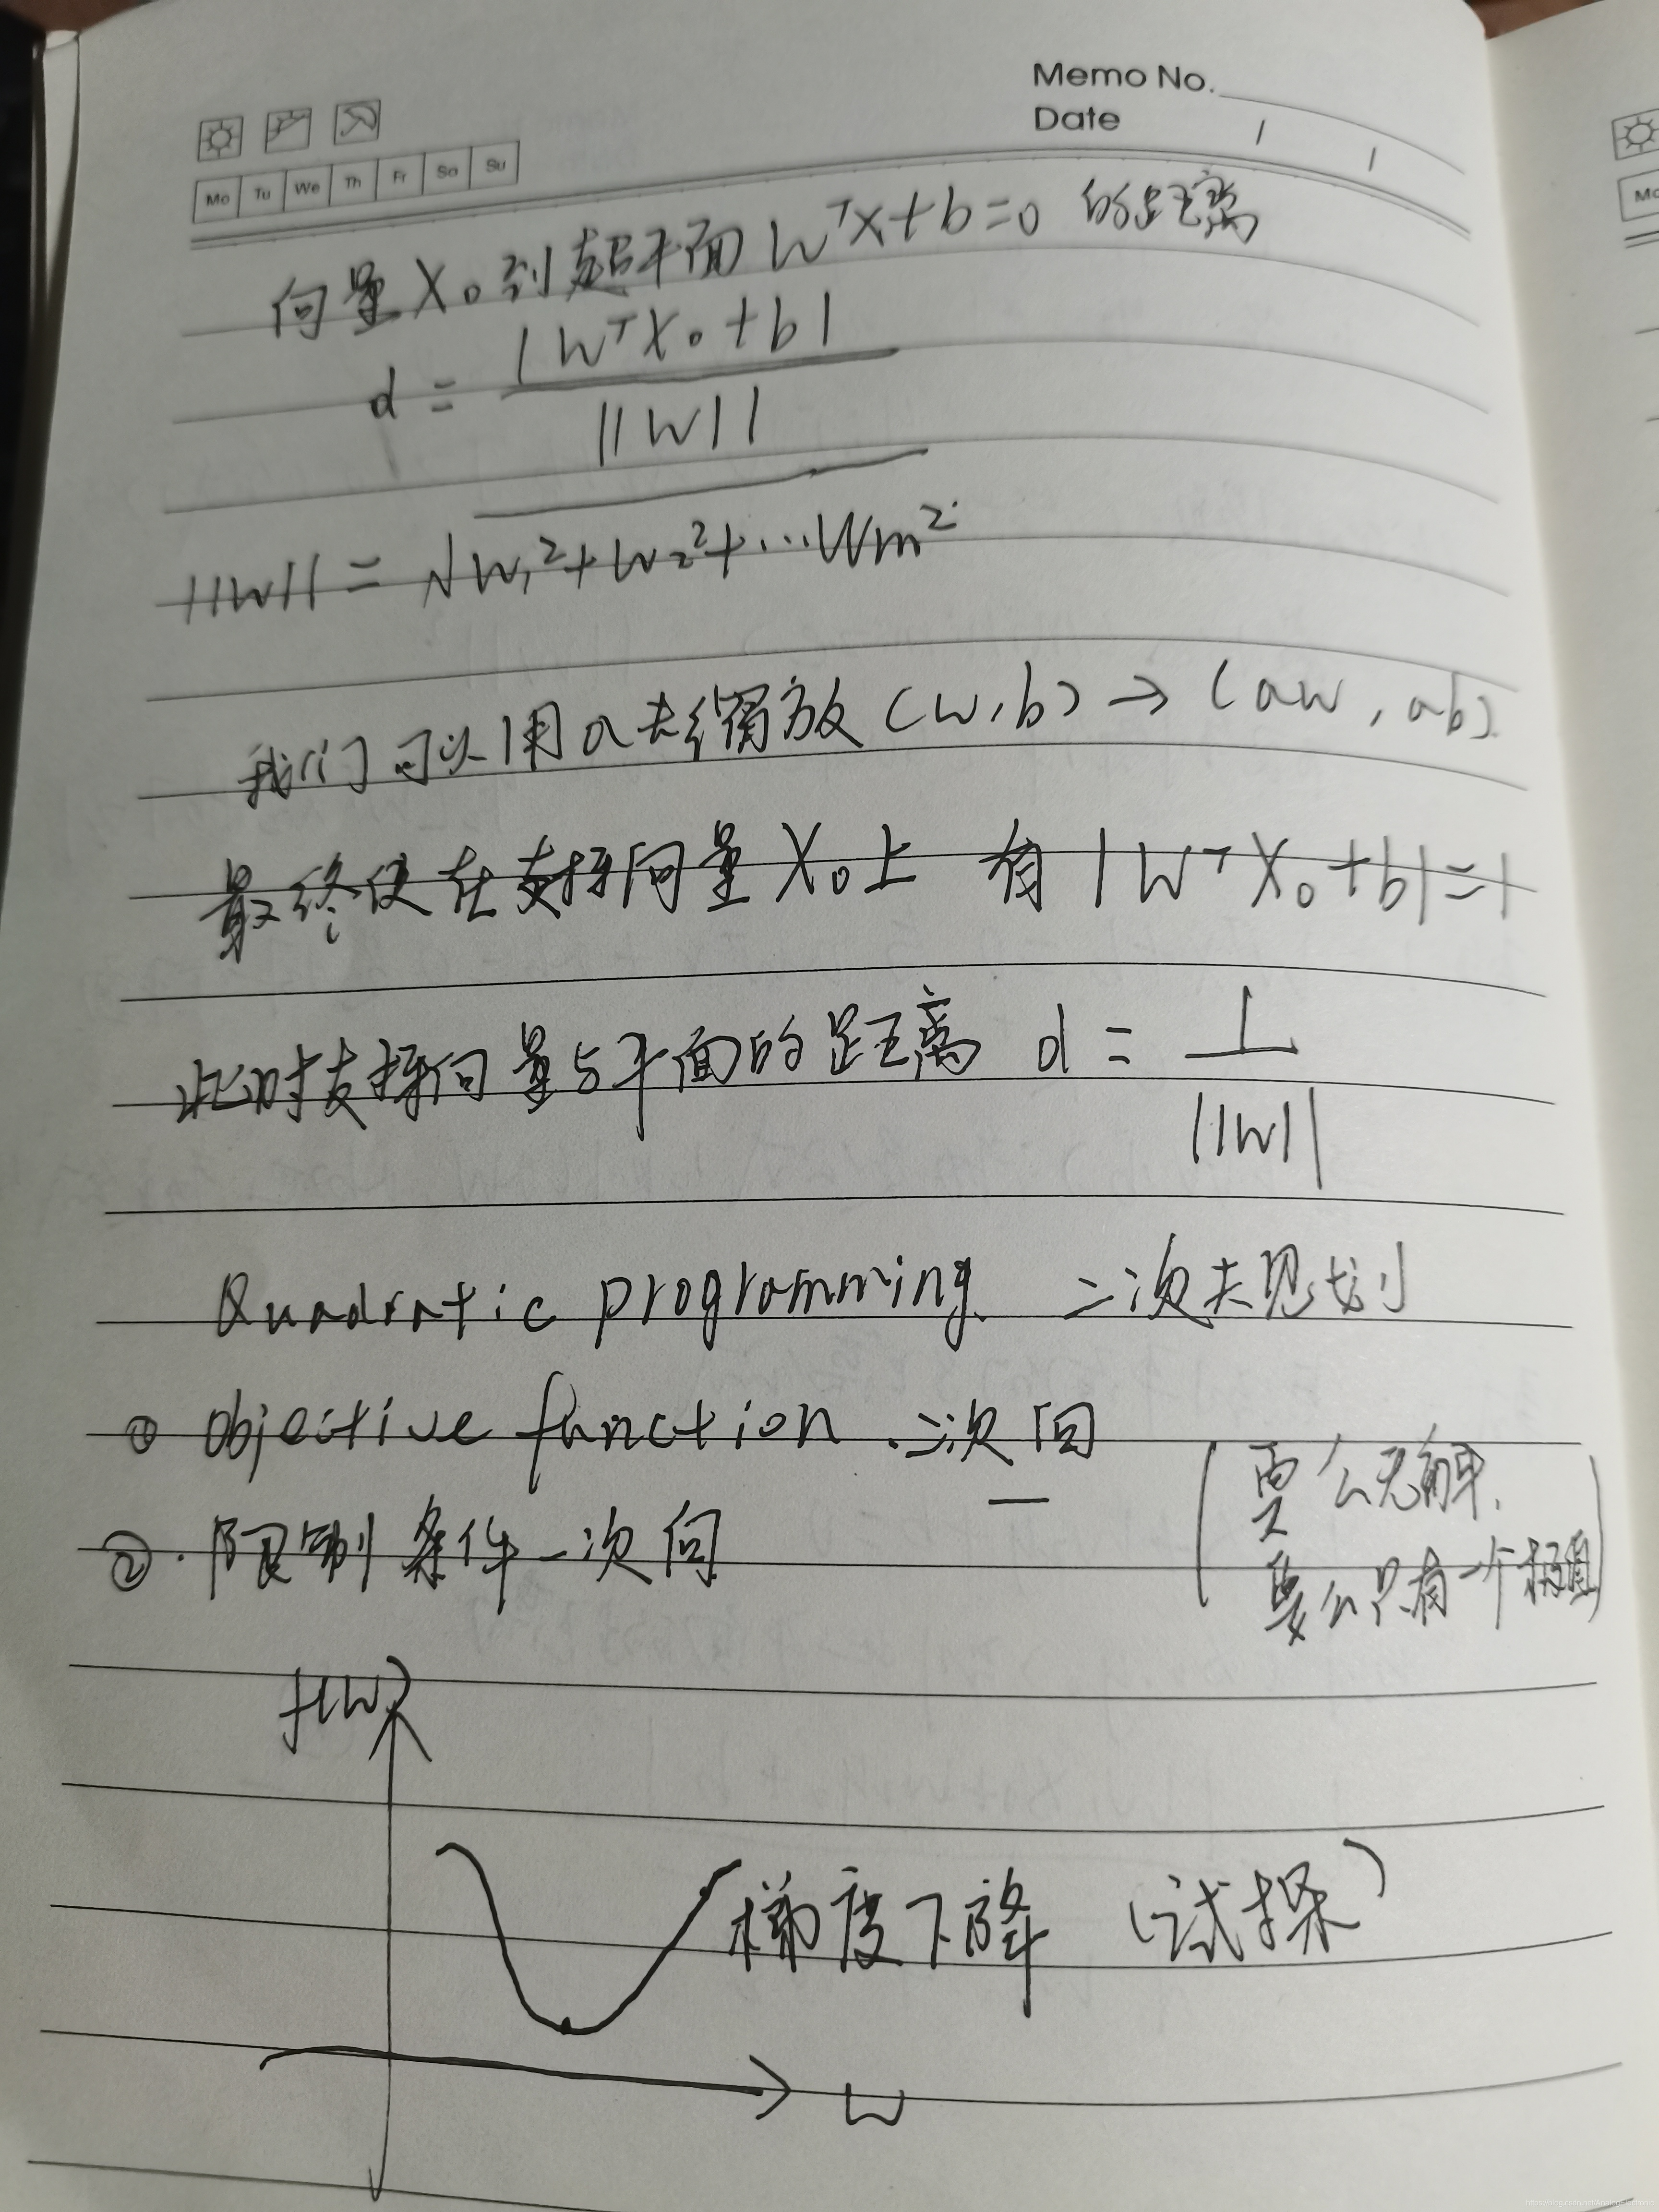 Memo No.
Date / /
Mo Tu We Th Fr Sa Su
向量X₀到超平面 Wᵀx+b=0 的距离
d = |WᵀX₀+b| / ||W||
||W|| = √W₁²+W₂²+...Wm²
我们可以用a去缩放(w,b)→(aw,ab)
最终使在支持向量X₀上 有|WᵀX₀+b|=1
此时支持向量与平面的距离 d = 1 / ||W||
Quadratic programming 二次规划
① Objective function 二次
② 限制条件一次
要么无解
要么只有一个极值
f(W)
梯度下降 (试探)
W
Mo